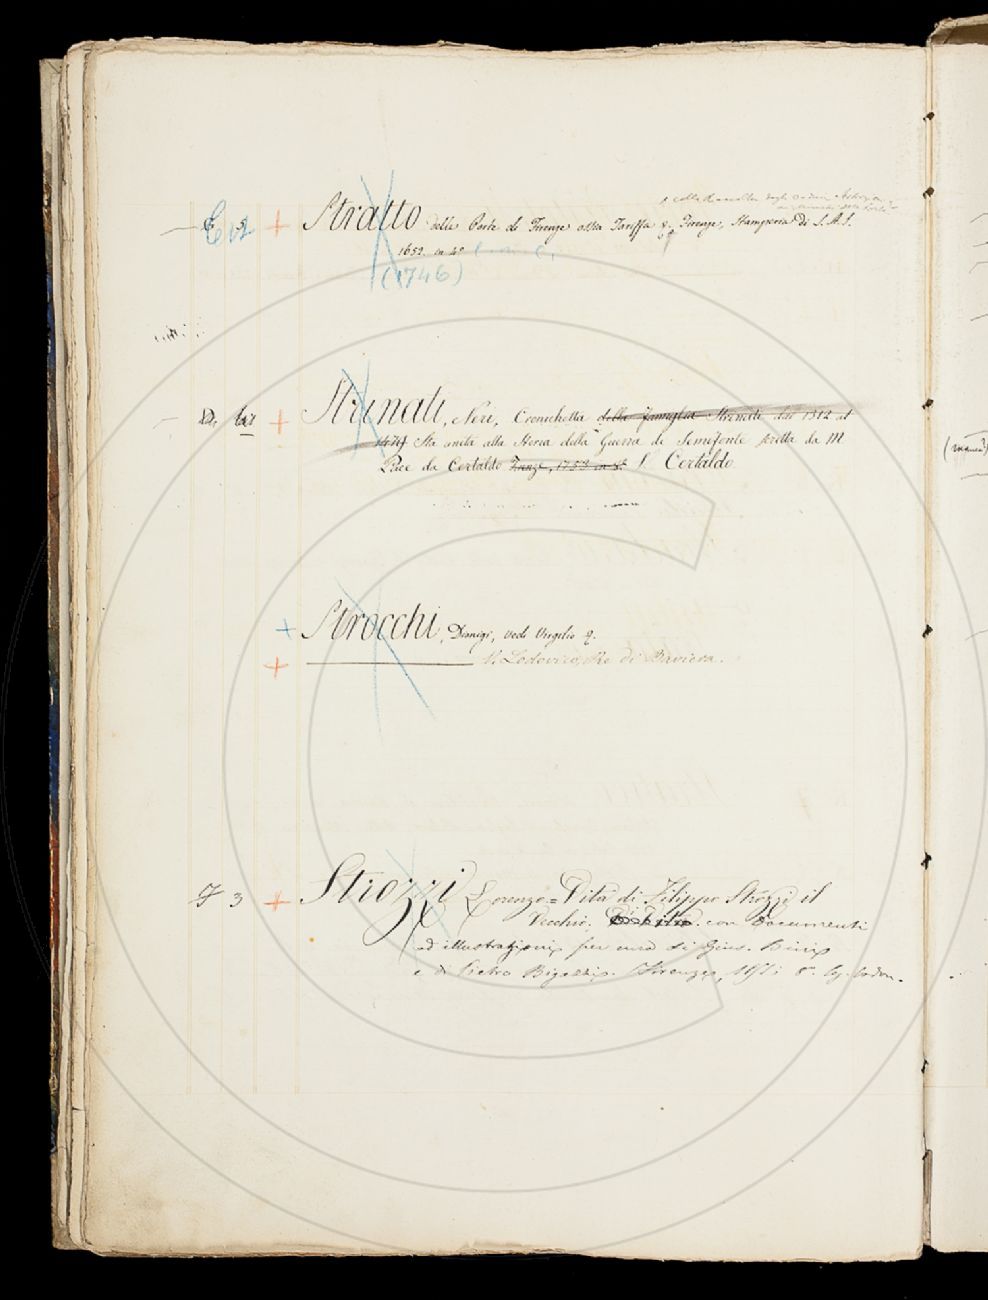 Stratto delle Porte di Firenze alla Tariffa &. Firenze, Stamperia di S.A.S.
1652. in 4º
(1746)
Strinati, Neri, Cronichetta della famiglia Strinati dal 1312 al
Sta unita alla Storia della Guerra di Semifonte scritta da M
Pace da Certaldo Firenze, 1753 in 8º V. Certaldo
(manca)
Strocchi, Dionigi, vedi Virgilio
V. Lodovico, Re di Baviera.
3 Strozzi Lorenzo = Vita di Filippo Strozzi il
Vecchio. con documenti
ed illustrazioni per cura di Gius. Bini
e di Pietro Bigazzi. Firenze, 1851 8º